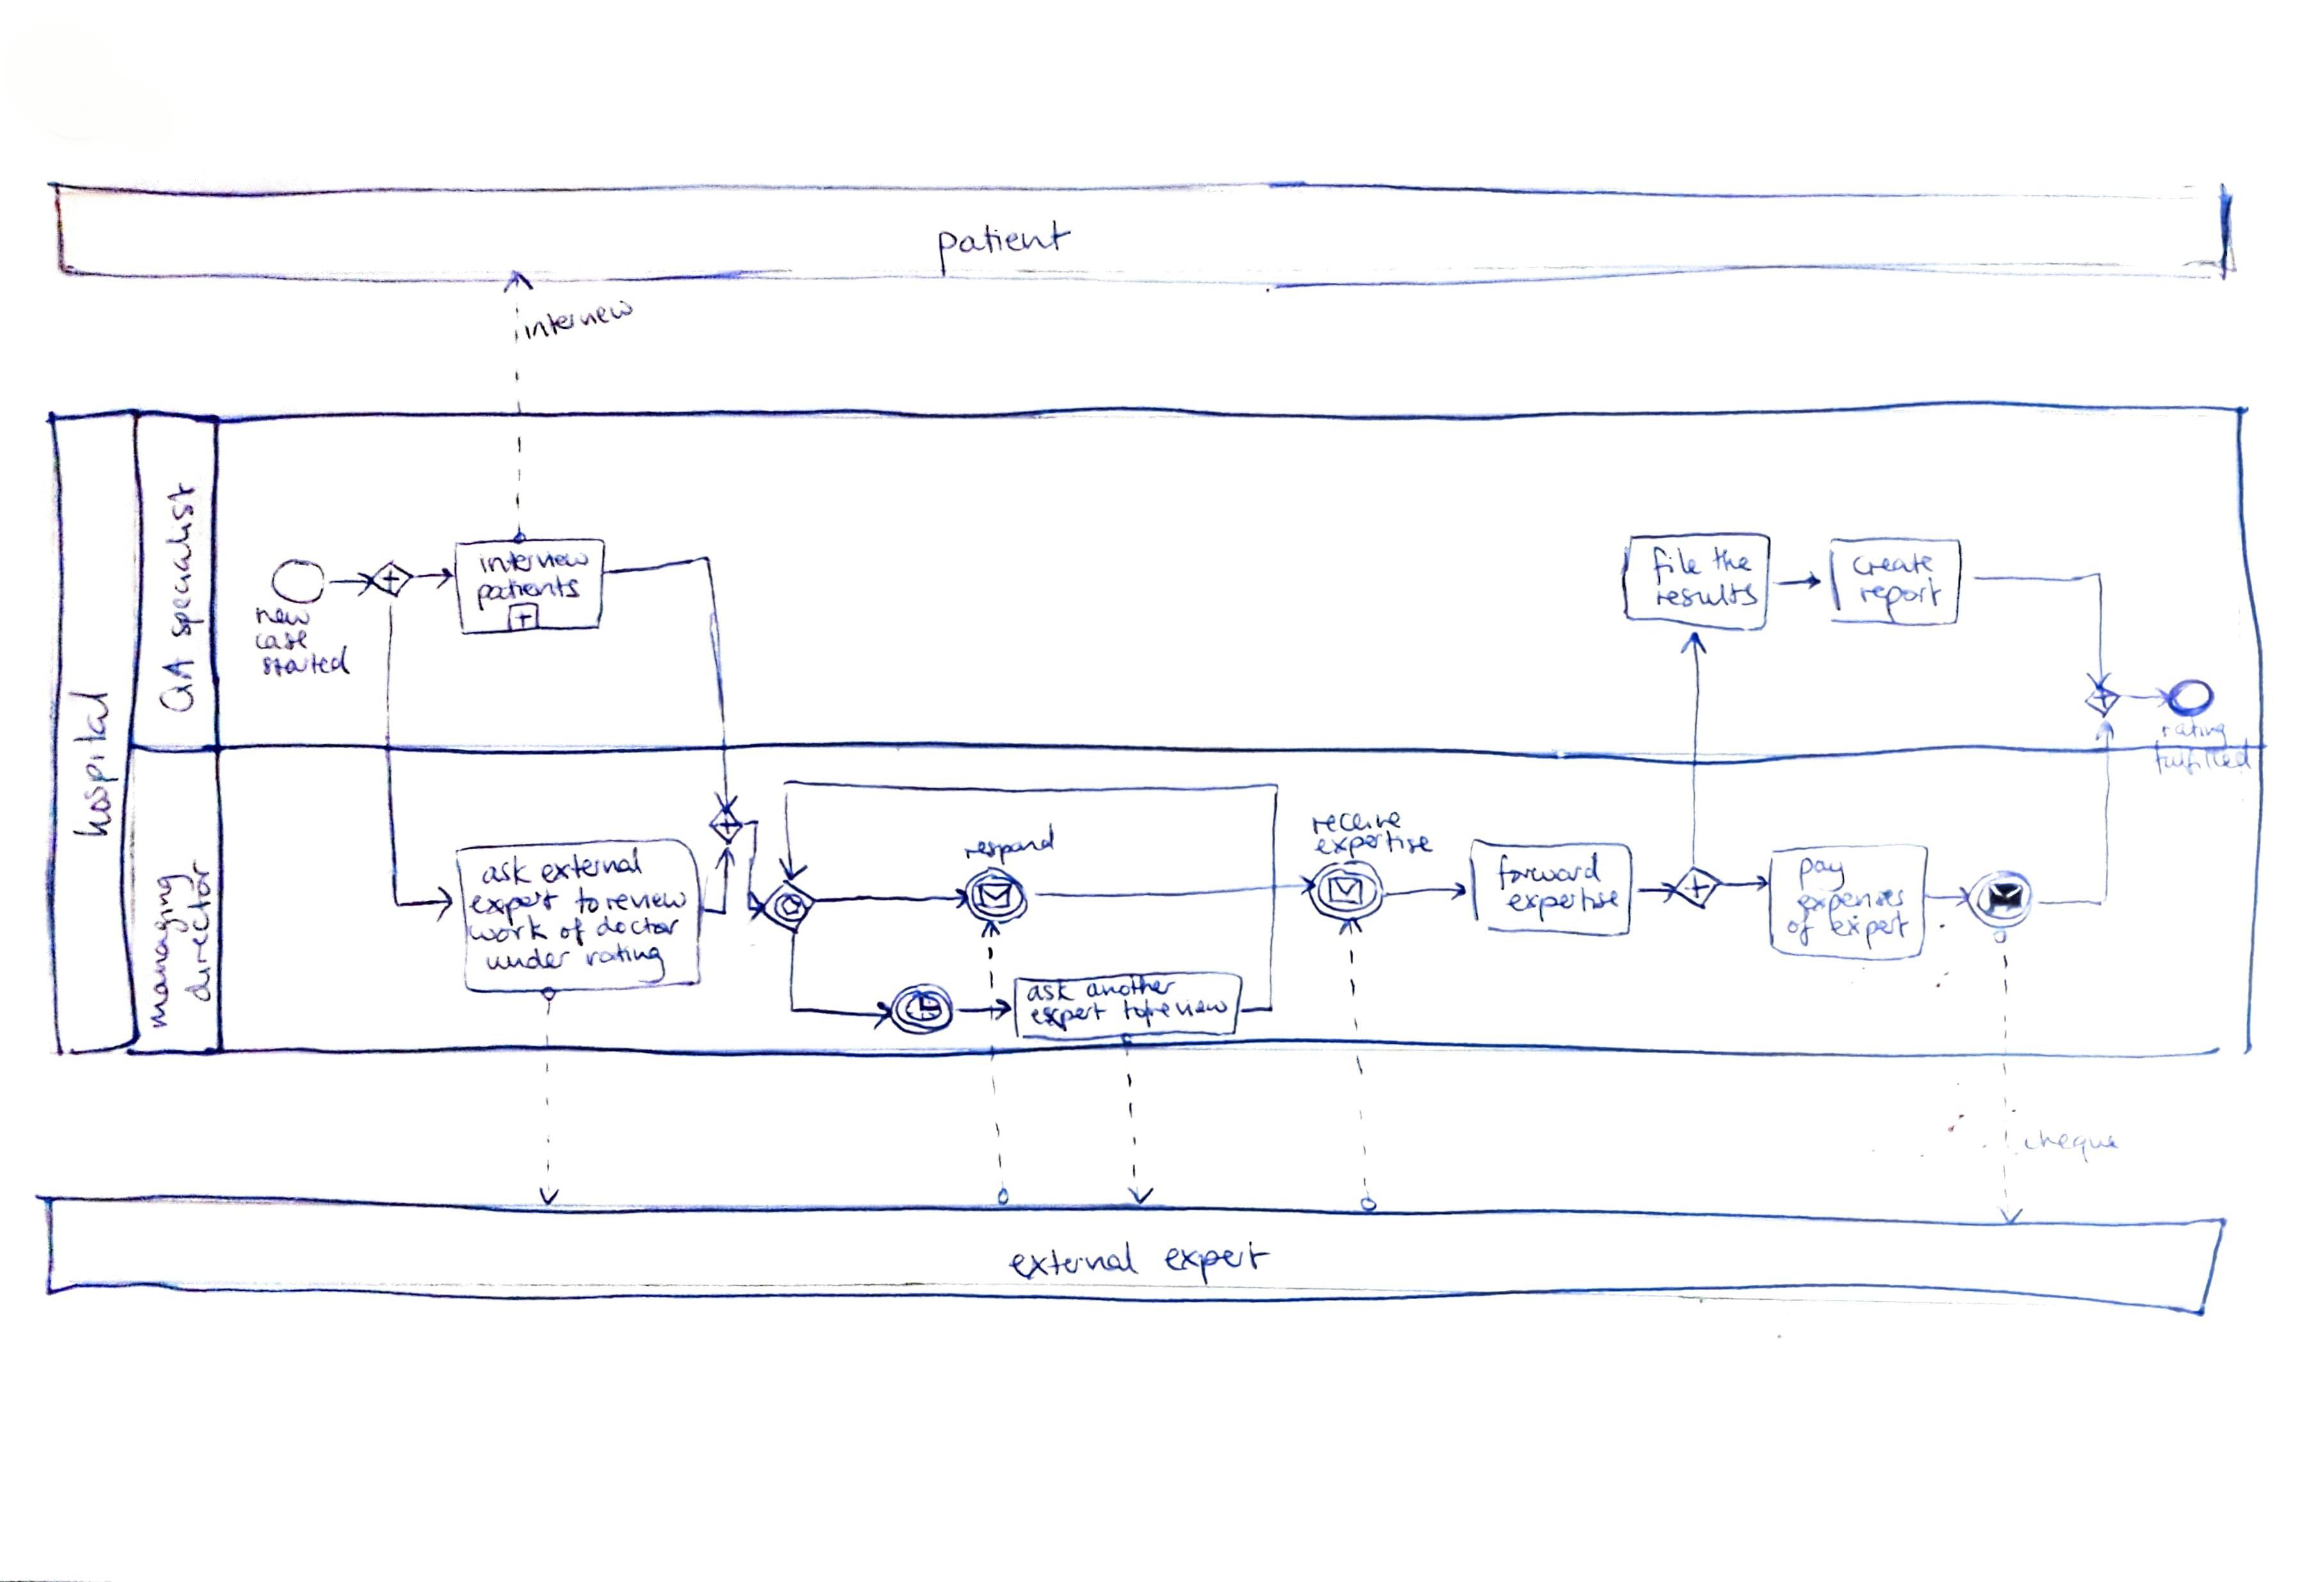 patient
interview
hospital
QA specialist
new
case
started
interview
patients
file the
results
create
report
rating
fulfilled
managing
director
ask external
expert to review
work of doctor
under rating
respond
receive
expertise
forward
expertise
pay
expenses
of expert
ask another
expert to review
cheque
external expert